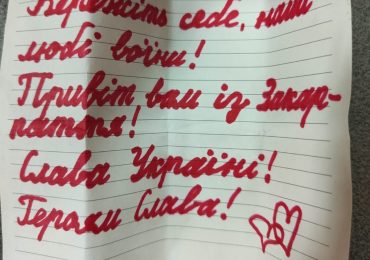 Бережіть себе, наші
любі воїни!
Привіт вам із Закар-
паття!
Слава Україні!
Героям Слава!